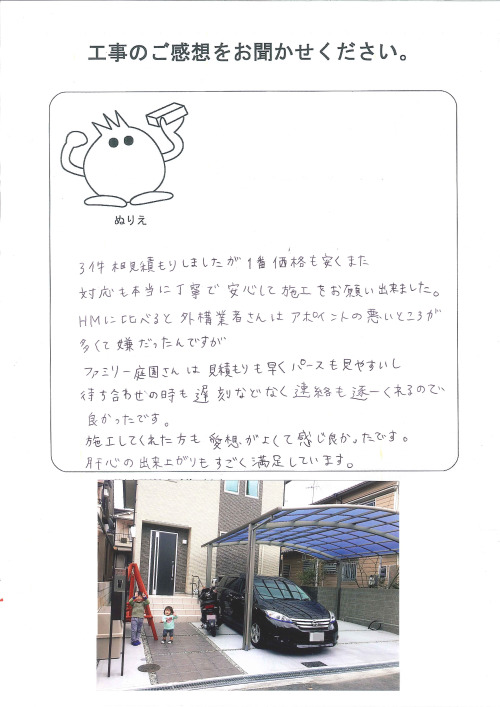 工事のご感想をお聞かせください。
ぬりえ
3件 相見積もりしましたが 1番 価格も安くまた
対応も本当に丁寧で 安心して施工をお願い出来ました。
HMに比べると 外構業者さんは アポイントの悪いところが
多くて嫌だったんですが
ファミリー庭園さんは 見積もりも早くパースも見やすいし
待ち合わせの時も 遅刻などなく 連絡も逐一くれるので
良かったです。
施工してくれた方も 愛想がよくて感じ良かったです。
肝心の出来上がりもすごく満足しています。